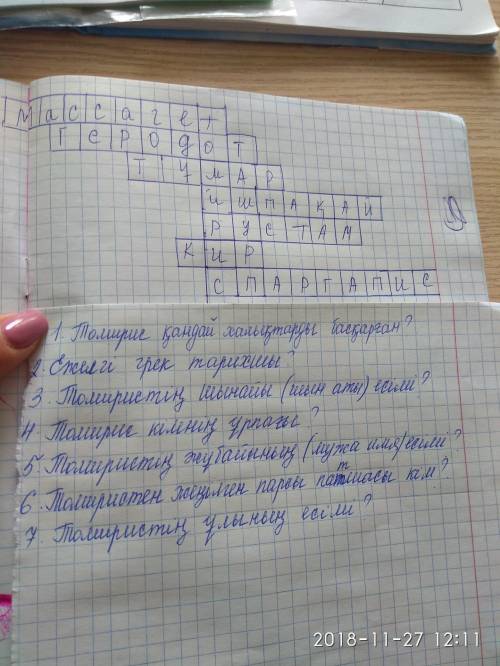 Массагет
Геродот
Тумар
ишпакай
Рустам
Кир
Спаргапис
1. Томирис қандай халықтарды басқарған?
2. Ежелгі грек тарихшы?
3. Томиристің шынайы (шын аты) есімі?
4 Томирис кімнің ұрпағы?
5. Томиристің жұбайының (мужа имя) есімі?
6. Томиристен жеңілген парсы патшасы кім?
7. Томиристің ұлының есімі?
2018-11-27 12:11